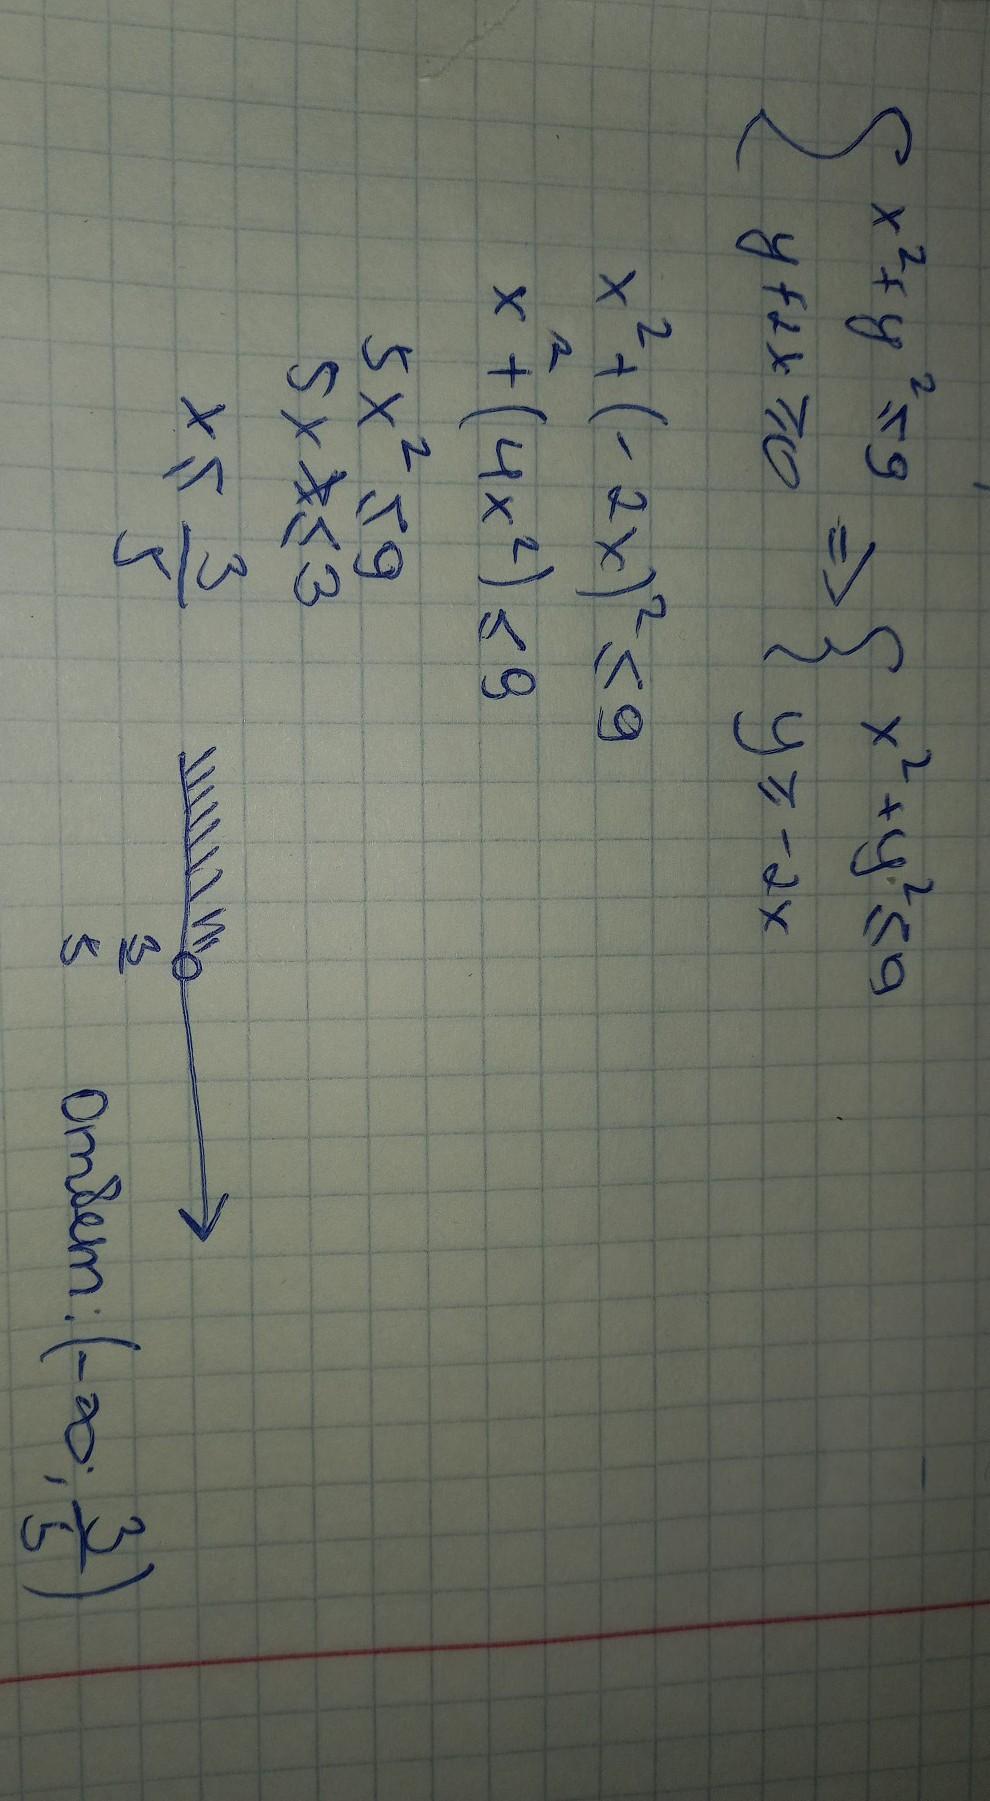 { x² + y² ≤ 9 => { x² + y² ≤ 9
y + 2x ≥ 0 y ≥ -2x
x² + (-2x)² ≤ 9
x² + (4x²) ≤ 9
5x² ≤ 9
5x ≤ 3
x ≤ 3/5
3/5
Ответ: (-∞; 3/5)